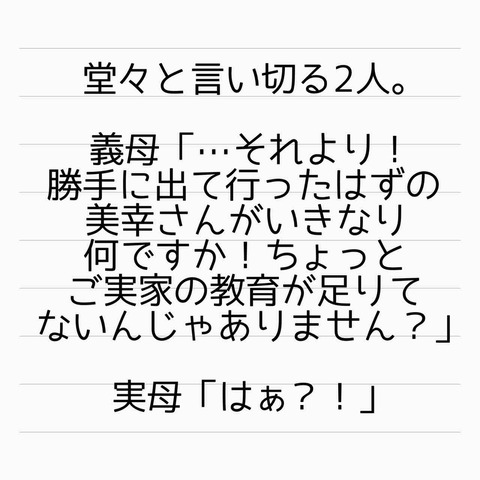 堂々と言い切る2人。
義母「…それより！
勝手に出て行ったはずの
美幸さんがいきなり
何ですか！ちょっと
ご実家の教育が足りて
ないんじゃありません？」
実母「はぁ？！」